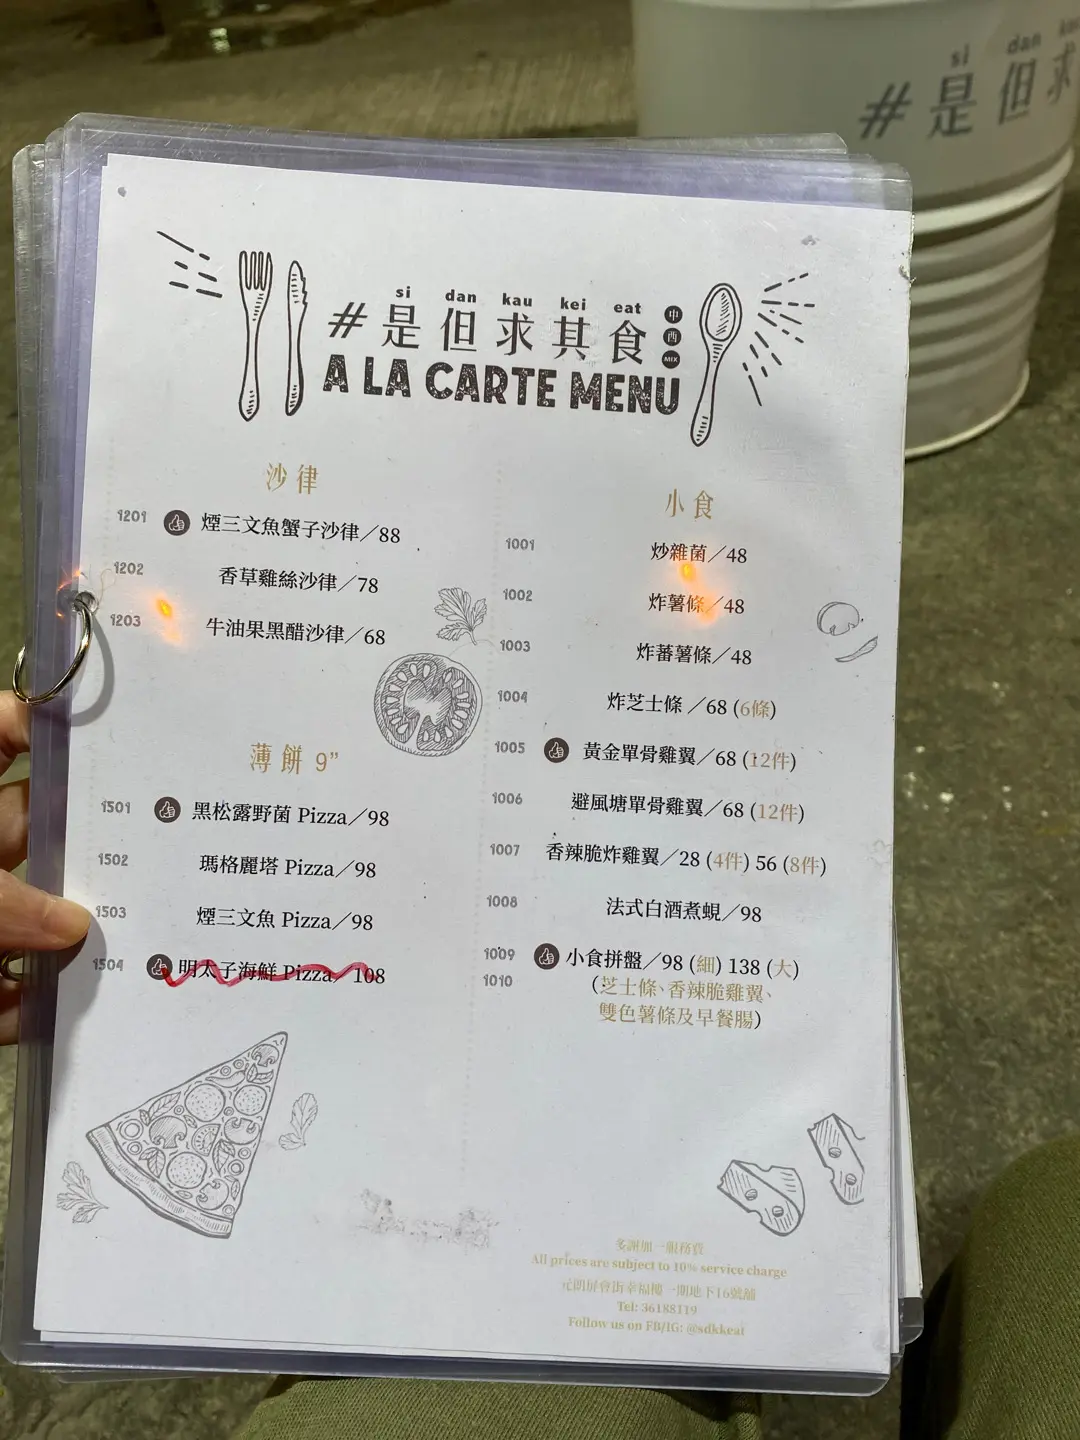 si dan
#是但求
si dan kau kei eat
#是但求其食 中西MIX
A LA CARTE MENU
沙律
1201 煙三文魚蟹子沙律／88
1202 香草雞絲沙律／78
1203 牛油果黑醋沙律／68
薄餅 9”
1501 黑松露野菌 Pizza／98
1502 瑪格麗塔 Pizza／98
1503 煙三文魚 Pizza／98
1504 明太子海鮮 Pizza／108
小食
1001 炒雜菌／48
1002 炸薯條／48
1003 炸蕃薯條／48
1004 炸芝士條／68 (6條)
1005 黃金單骨雞翼／68 (12件)
1006 避風塘單骨雞翼／68 (12件)
1007 香辣脆炸雞翼／28 (4件) 56 (8件)
1008 法式白酒煮蜆／98
1009 小食拼盤／98 (細) 138 (大)
1010 (芝士條、香辣脆雞翼、
雙色薯條及早餐腸)
多謝加一服務費
All prices are subject to 10% service charge
元朗屏會街幸福樓一期地下16號舖
Tel: 36188119
Follow us on FB/IG: @sdkkeat